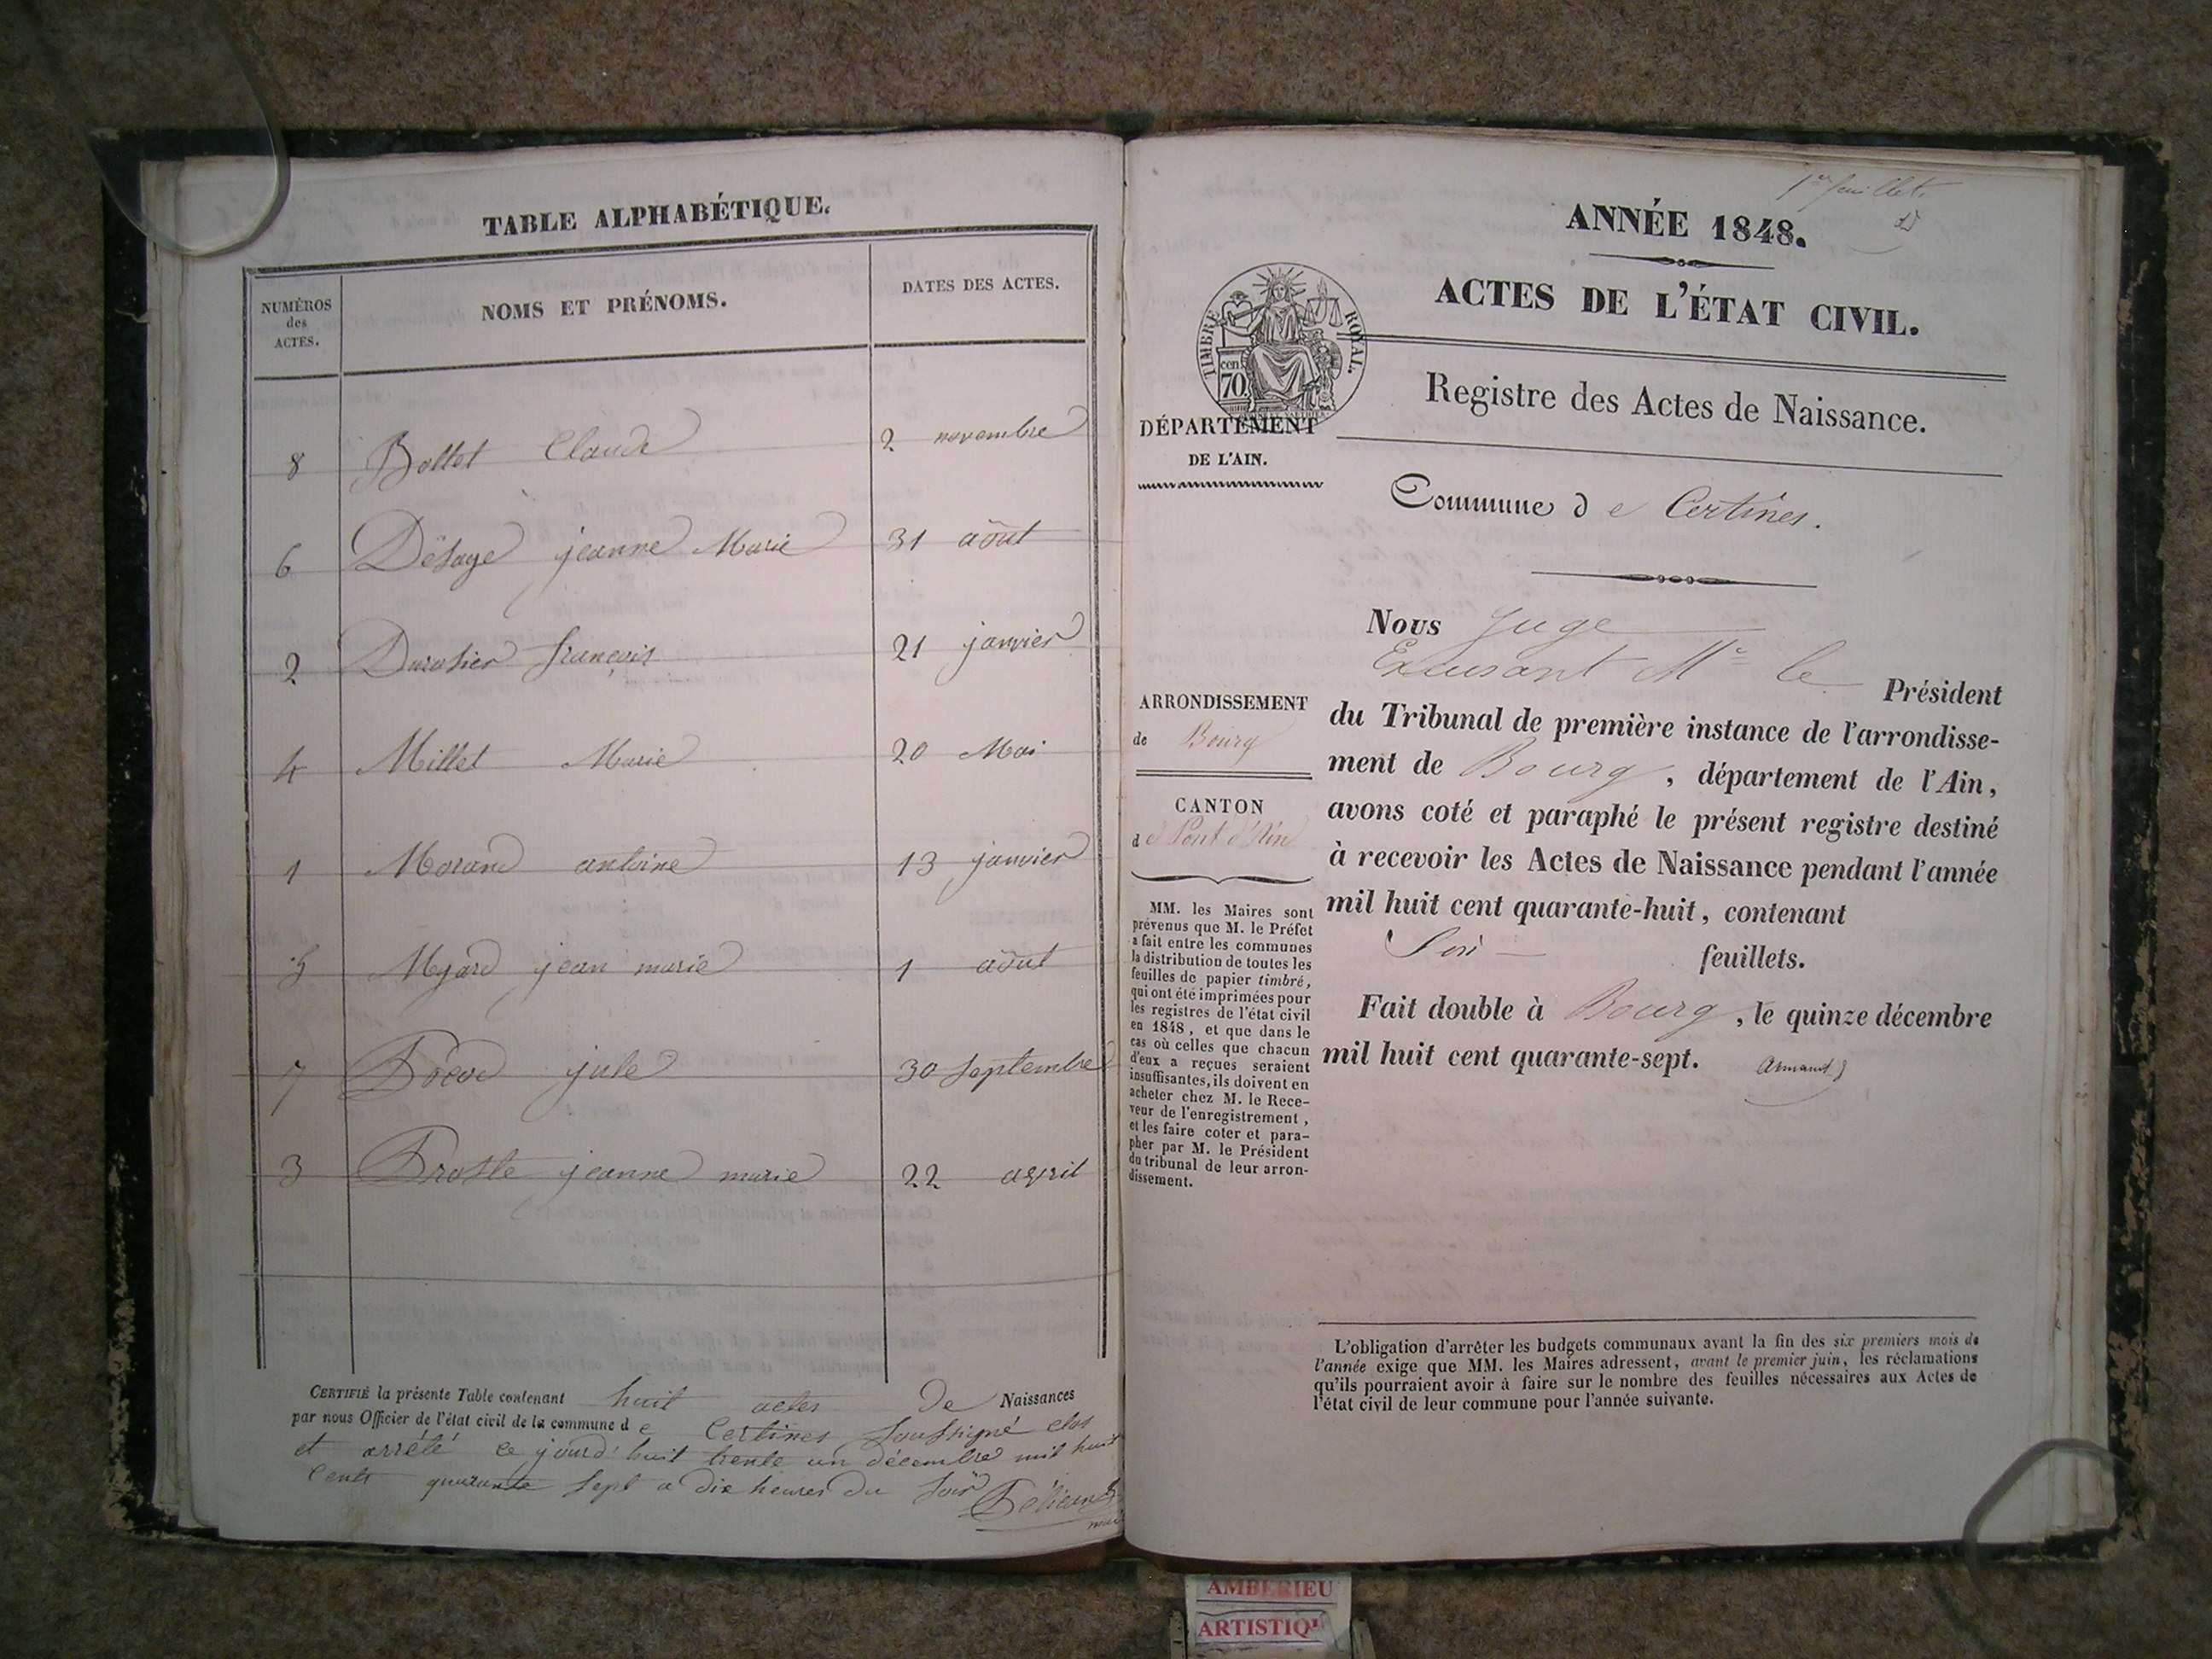 TABLE ALPHABÉTIQUE.
NUMÉROS des ACTES. NOMS ET PRÉNOMS. DATES DES ACTES.
8 Bollet Claude 2 novembre
6 Désage jeanne Marie 31 août
2 Durosier françois 21 janvier
4 Millet Marie 20 Mai
1 Morand antoine 13 janvier
5 Mgard jean marie 1 août
7 jule 30 Septembre
3 Broste jeanne marie 22 avril
CERTIFIÉ la présente Table contenant huit actes De Naissances
par nous Officier de l'état civil de la commune de Certines soussigné clos
et arrété ce jourd'huit trente un décembre mil huit
cents quarante sept a dix heures du soir
1er feuillet.
ANNÉE 1848.
ACTES DE L'ÉTAT CIVIL.
TIMBRE ROYAL.
cen. 70.
Registre des Actes de Naissance.
DÉPARTEMENT
DE L'AIN.
Commune de Certines.
Nous Juge
Excusant Mr le Président
du Tribunal de première instance de l'arrondisse-
ment de Bourg, département de l'Ain,
avons coté et paraphé le présent registre destiné
à recevoir les Actes de Naissance pendant l'année
mil huit cent quarante-huit, contenant
Six feuillets.
Fait double à Bourg, le quinze décembre
mil huit cent quarante-sept. Armand
ARRONDISSEMENT
de Bourg
CANTON
de Pont d'Ain
MM. les Maires sont
prévenus que M. le Préfet
a fait entre les communes
la distribution de toutes les
feuilles de papier timbré,
qui ont été imprimées pour
les registres de l'état civil
en 1848, et que dans le
cas où celles que chacun
d'eux a reçues seraient
insuffisantes, ils doivent en
acheter chez M. le Rece-
veur de l'enregistrement,
et les faire coter et para-
pher par M. le Président
du tribunal de leur arron-
dissement.
L'obligation d'arrêter les budgets communaux avant la fin des six premiers mois de
l'année exige que MM. les Maires adressent, avant le premier juin, les réclamations
qu'ils pourraient avoir à faire sur le nombre des feuilles nécessaires aux Actes de
l'état civil de leur commune pour l'année suivante.
AMBERIEU
ARTISTIQU